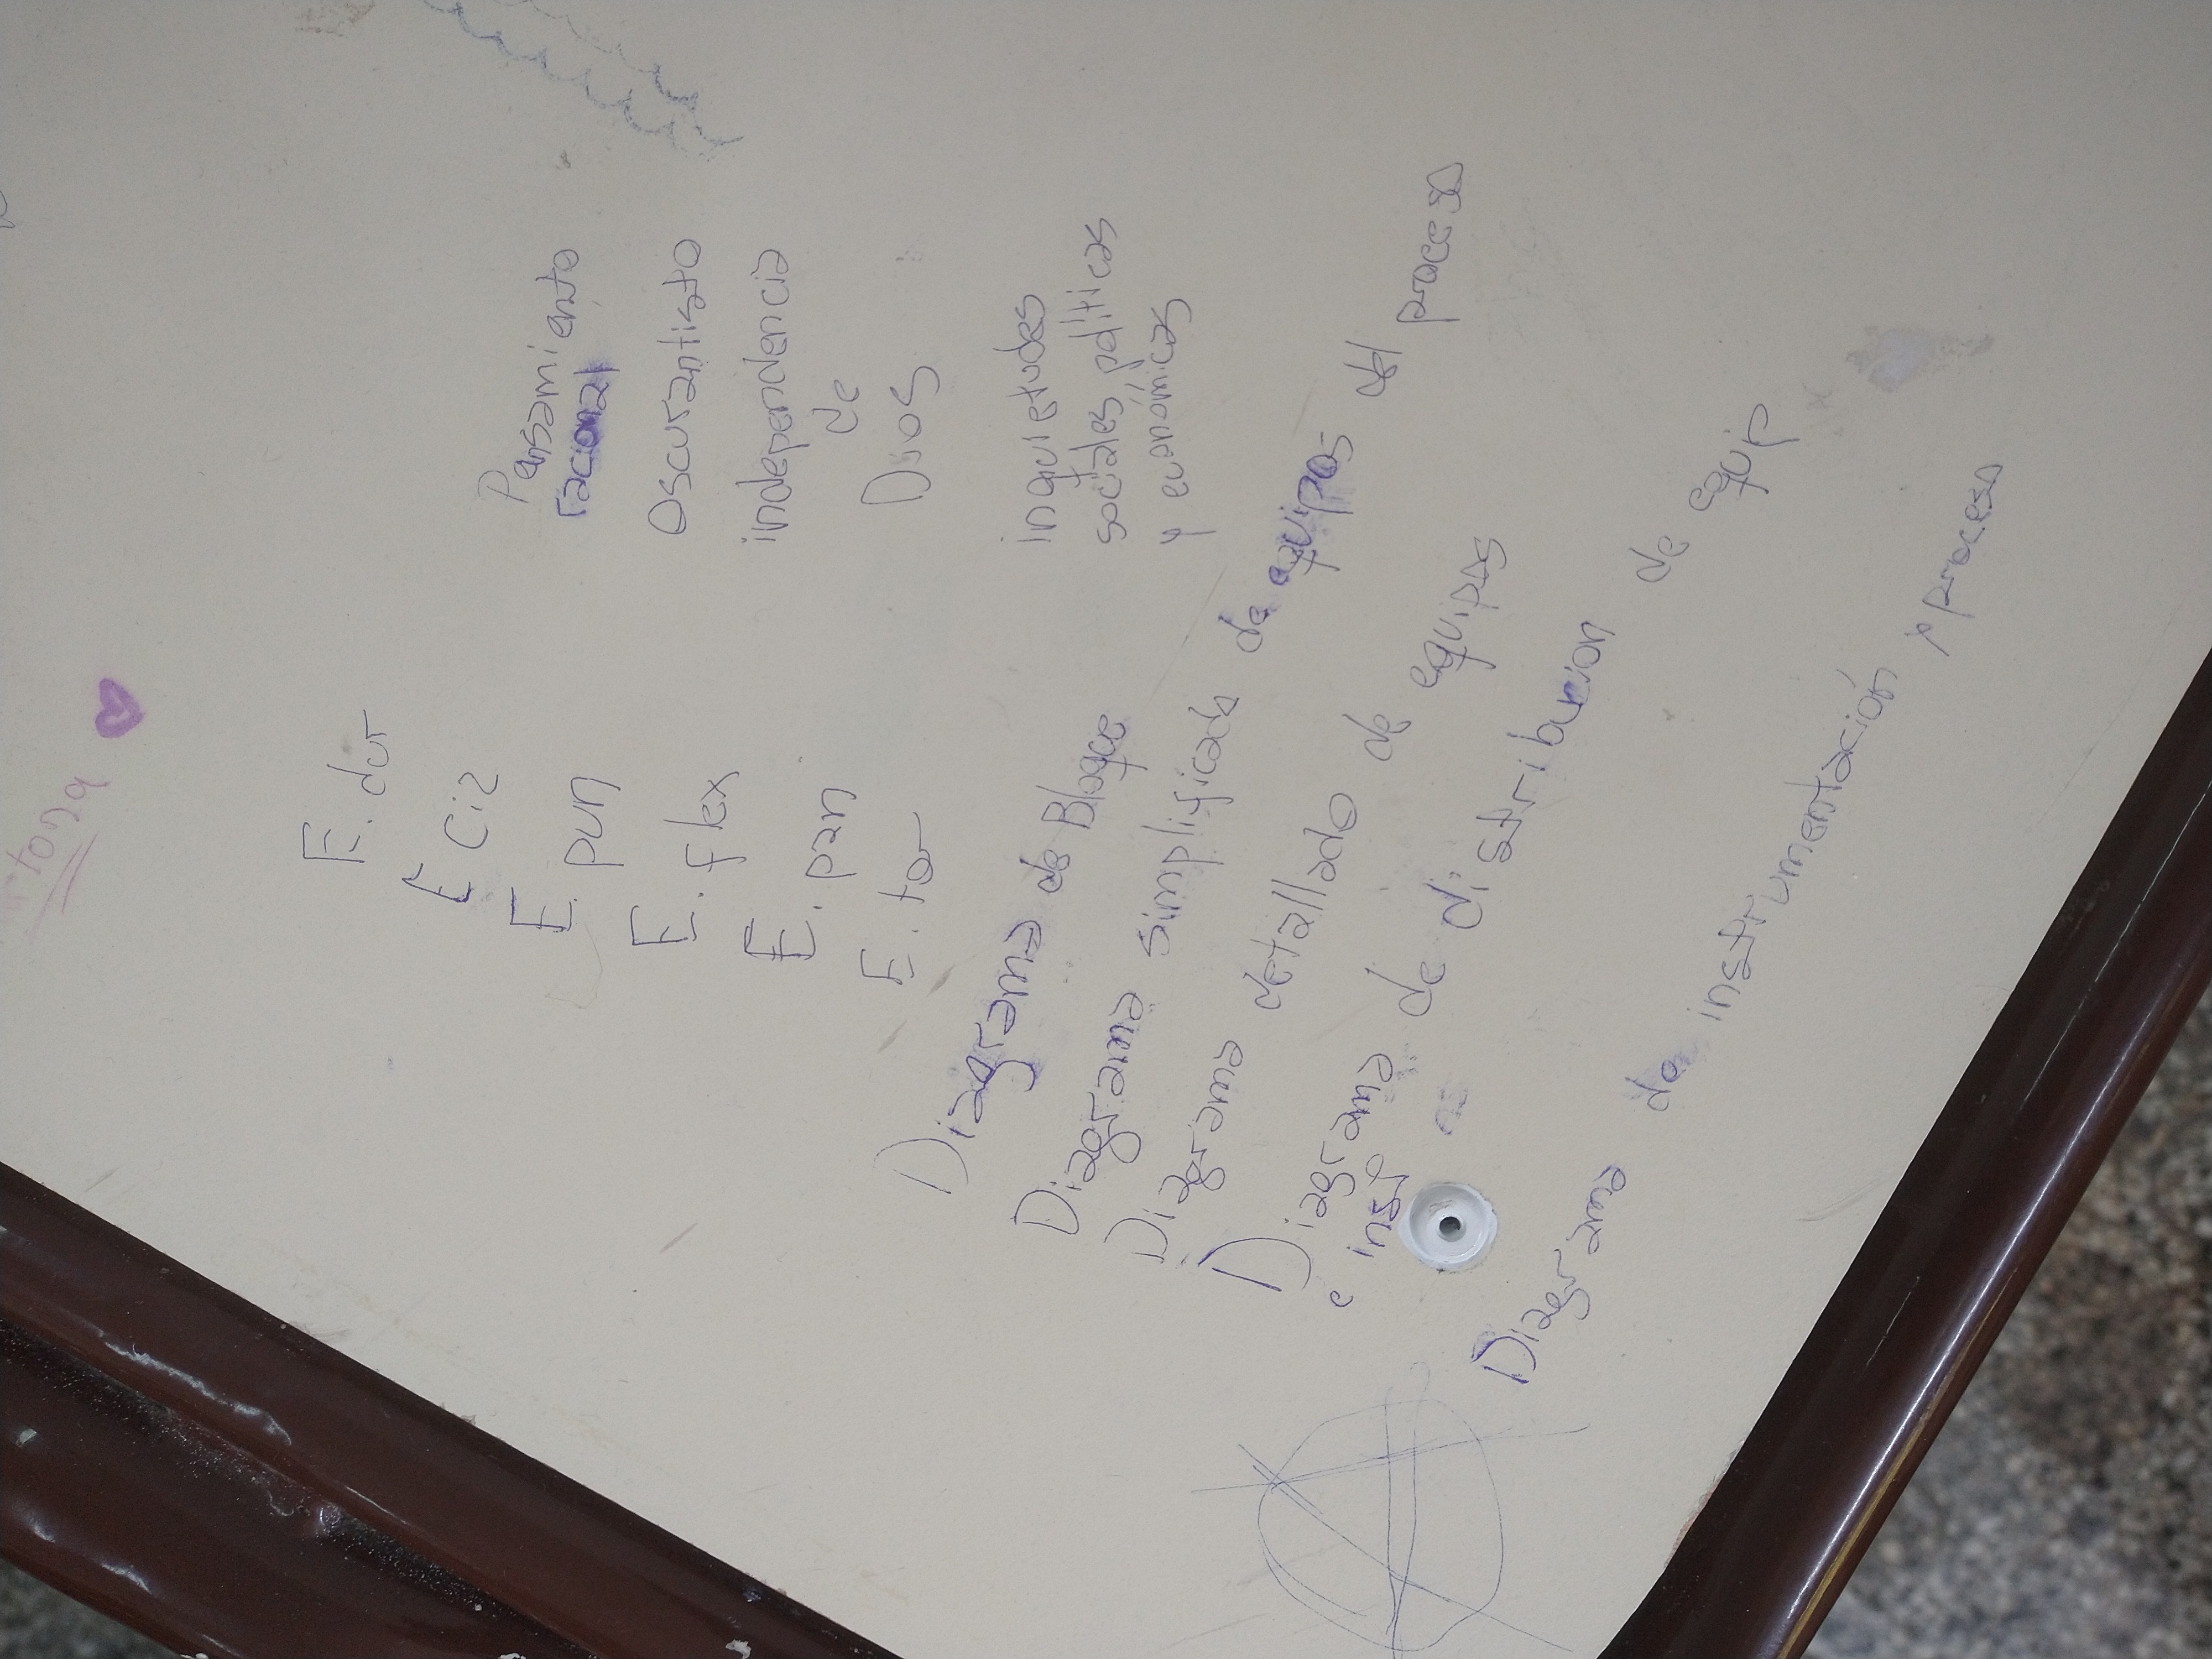 E. dur
E Ciz
E. pun
E. flex
E. pan
E. tor
Pensamiento
racional
Oscurantisto
independencia
de
Dios
inquietudes
sociales, políticas
y económicas
Diagrama de Bloque
Diagrama simplificado de equipos del proceso
Diagrama detallado de equipos
Diagrama de distribucion de equip
e inst
Diagrama de instrumentación y proceso